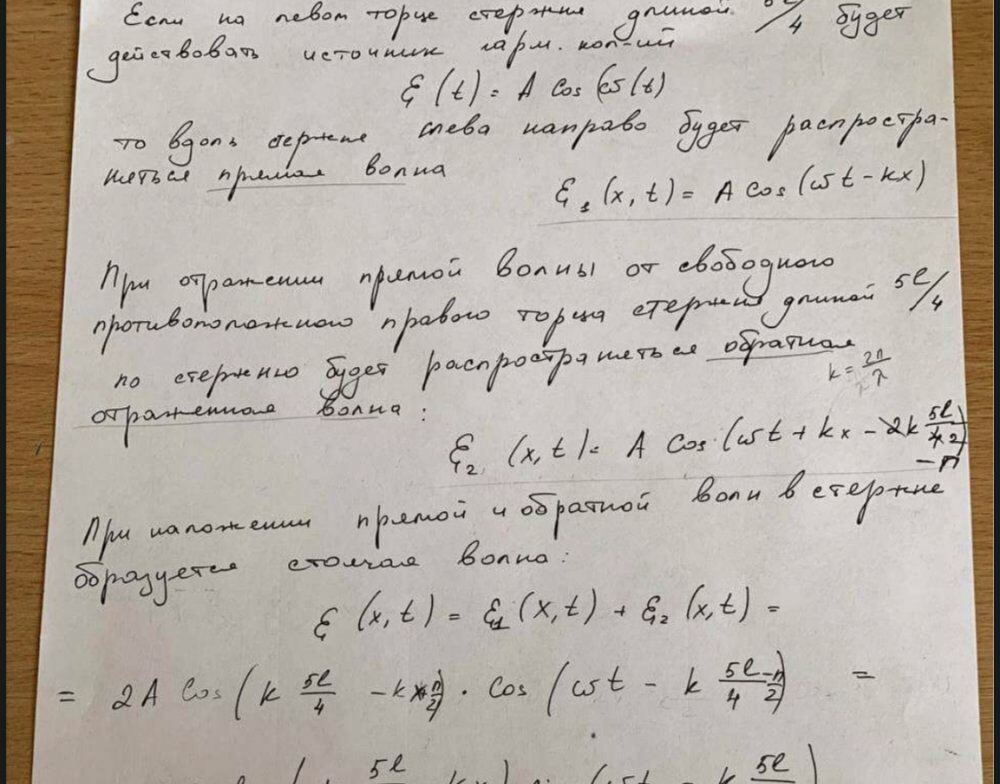 Если на левом торце стержня длиной 5l/4 будет
действовать источник гарм. кол-ий
ξ(t) = A cos(ω(t)
то вдоль стержня слева направо будет распростра-
няться прямая волна
ξ₁(x, t) = A cos(ωt - kx)
При отражении прямой волны от свободного
противоположного правого торца стержня длиной 5l/4
по стержню будет распространяться обратная
k = 2π/λ
отраженная волна:
ξ₂(x, t) = A cos(ωt + kx - 2k 5l/2)
- π
При наложении прямой и обратной волн в стержне
образуется стоячая волна:
ξ(x, t) = ξ₁(x, t) + ξ₂(x, t) =
= 2A cos(k 5l/4 - kx π/2) · cos(ωt - k 5l/4 - π/2) =
5l/ kx) (ωt - k 5l/